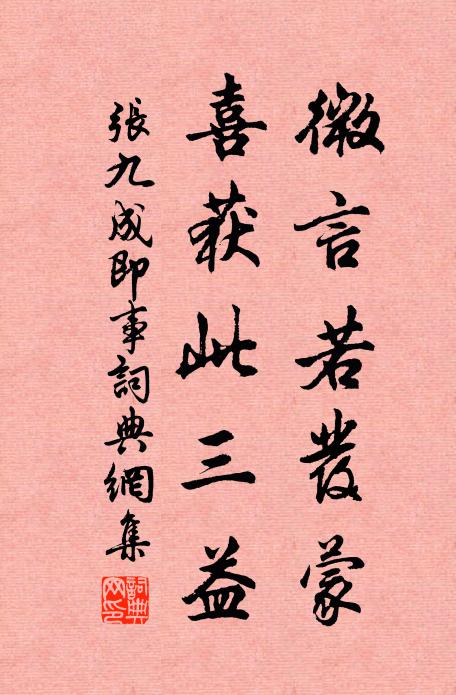 微言若發蒙
喜获此三益
張九成即事詞典網集
詞典網印